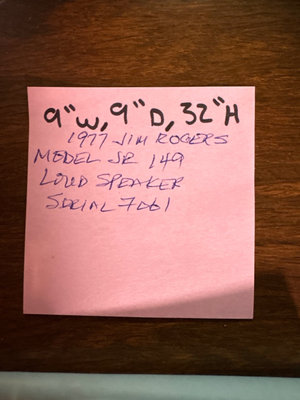 9"W, 9"D, 32"H
1977 JIM ROGERS
MODEL JR 149
LOUD SPEAKER
SERIAL